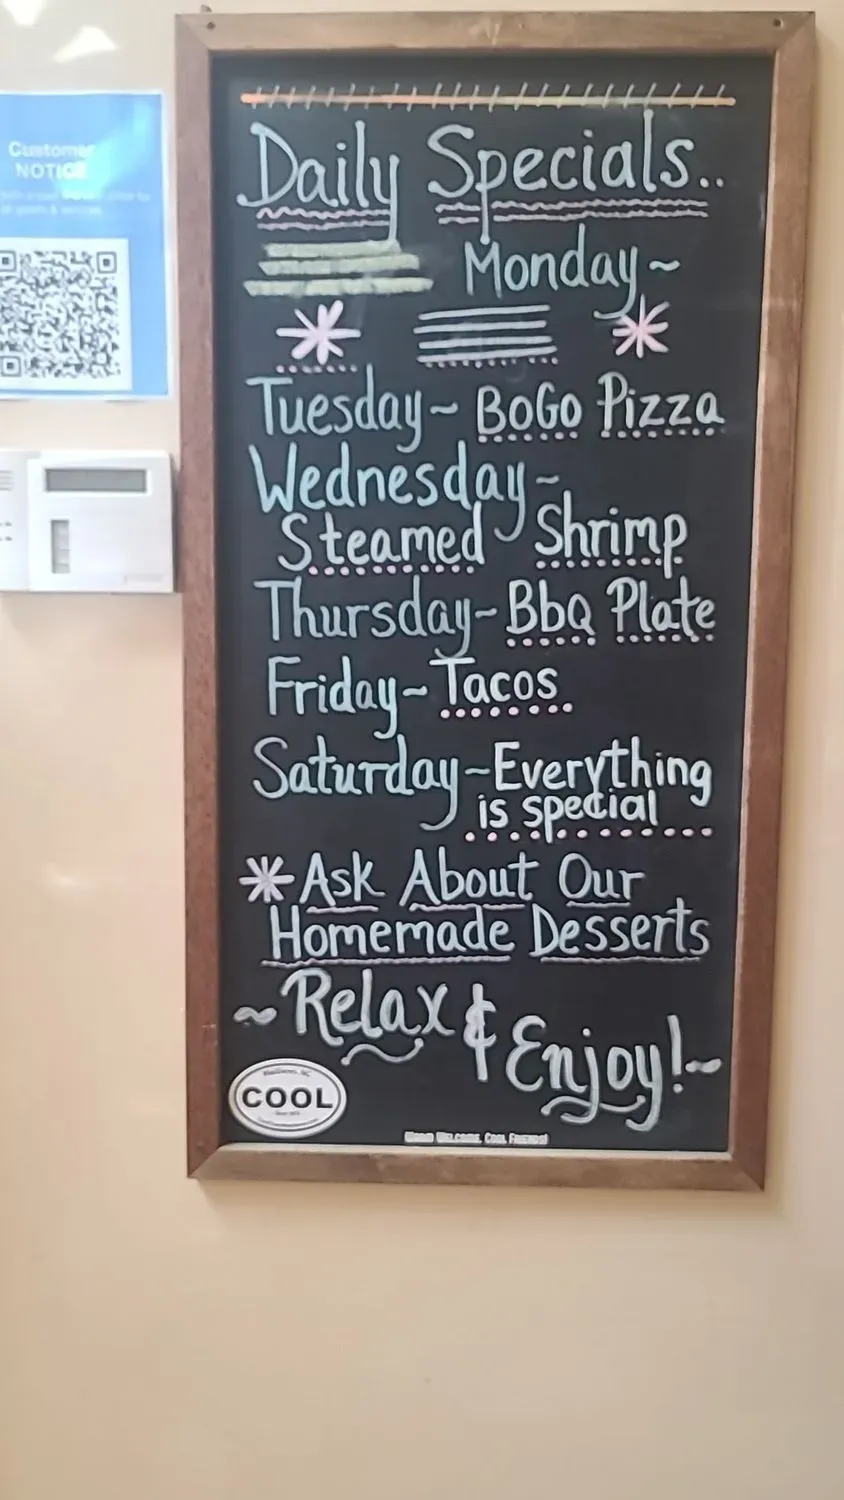 Customer
NOTICE
Daily Specials..
Monday~
Tuesday~ BoGo Pizza
Wednesday~
Steamed Shrimp
Thursday~ BbQ Plate
Friday~ Tacos
Saturday~ Everything
is special
* Ask About Our
Homemade Desserts
~ Relax & Enjoy! ~
COOL